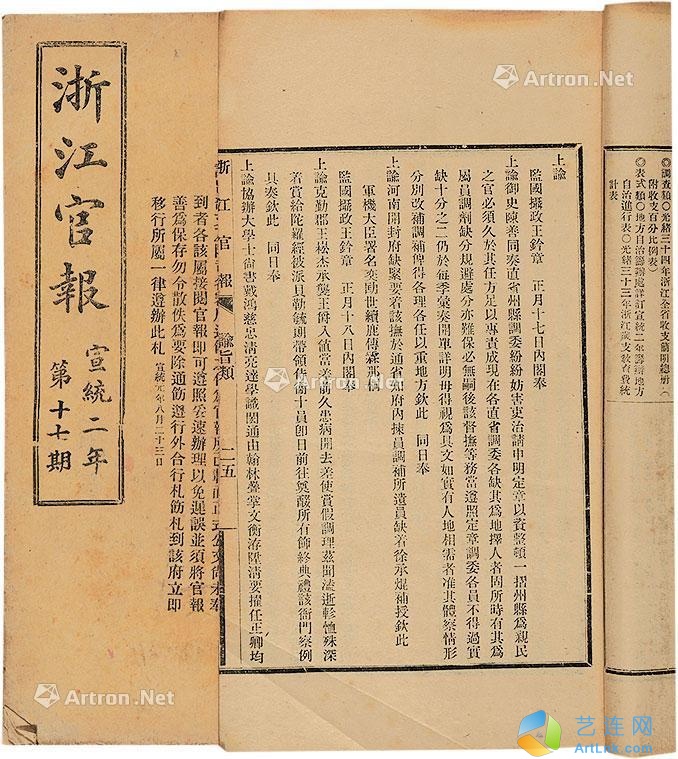 浙江官報
宣統二年
第十七期
到者各該屬接閱官報即可遵照雲速辦理以免遲誤並須將官報
善爲保存勿令散佚爲要除通飭遵行外合行札飭札到該府立即
移行所屬一律遵辦此札
宣統元年八月二十三日
浙江官報
諭旨類
二五
上諭
監國攝政王鈐章 正月十七日內閣奉
上諭御史陳善同奏直省州縣調委紛紛妨害吏治請申明定章以資整頓一摺州縣爲親民
之官必須久於其任方足以專責成現在各直省調委各缺其爲地擇人者固所時有其爲
屬員調劑缺分規避處分亦難保必無嗣後該督撫等務當遵照定章調委各員不得過實
缺十分之二仍於每季彙奏開單詳明毋得視爲具文如實有人地相需者准其體察情形
分別改補調補俾得各理各任以重地方欽此 同日奉
上諭河南開封府缺緊要着該撫於通省知府內揀員調補所遺員缺着徐承焜補授欽此
軍機大臣署名奕劻世續鹿傳霖那桐
監國攝政王鈐章 正月十八日內閣奉
上諭克勤郡王崧杰承襲王爵入值當差前久患病開去差使賞假調理茲聞溘逝軫惜殊深
着賞給陀羅經被派貝勒毓朗帶領侍衛十員即日前往奠醊所有飾終典禮該衙門察例
具奏欽此 同日奉
上諭協辦大學士尚書戴鴻慈忠淸亮達學識閎通由翰林疊掌文衡洊陞淸要擢任正卿均
◎調査類○光緒三十四年浙江全省收支簡明總册(
附收支百分比例表)
◎表式類○地方自治籌辦處詳訂宣統二年籌辦地方
自治進行表○光緒三十三年浙江歲支敎育費統
計表
Artron.Net
Artron.Net
Artron.Net
Artron.Net
艺连网
ArtLkx.com